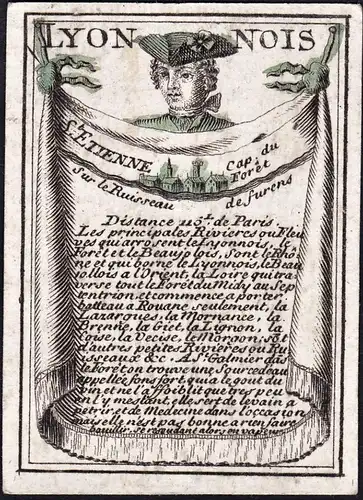 LYON NOIS
St. ETIENNE Cap. du Forêt
Sur le Ruisseau de furens
Distance 115 t. de Paris.
Les principales Rivieres ou Fleu
ves qui arrosent le Lyonnois, le
Forêt et le Beaujolois, Sont le Rhô
ne et qui borne le Lyonnois, le Beau
jollois a l'Orient, la Loire qui tra
verse tout le Forêt du Midy au Sep
tentrion et commence a porter
batteau a Rouane seulement, la
Lazargues, la Mornance, la
Brenne, la Giêt, la Lignon, la
Loise, la Vecise, le Morgon; sõt
d'autres petites Rivieres ou Ru
isseaux &c. A St. Galmier dãs
le Forêt on trouve une Source deau
appellée fons fort, qui a le gout du
vin et nul l'affoiblit que tres peu
en l'y meslant, elle sert de levain a
petrir, et de Medecine dans l'occasion
mais elle n'est pas bonne a rien faire
bouillir, se resoudant alors en vapeurs